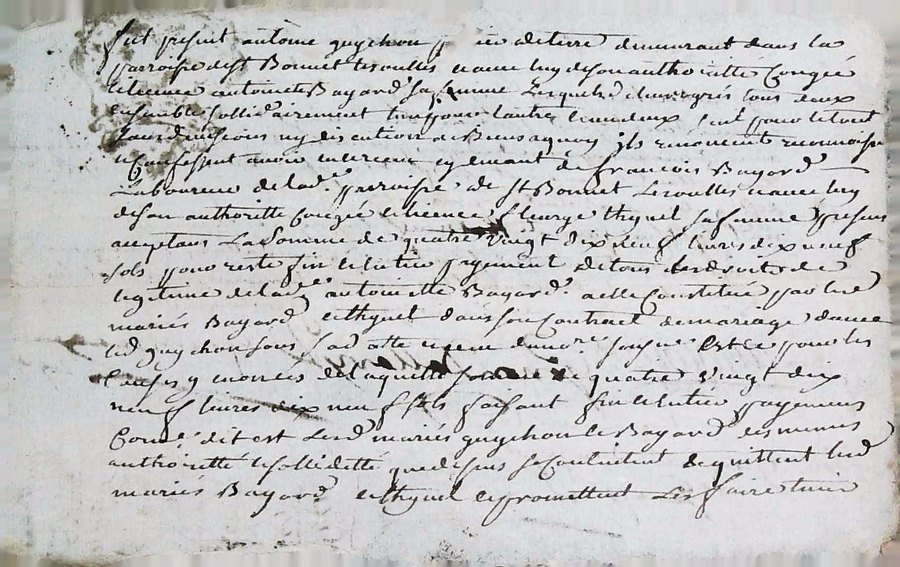 fut present antoine guychon de terre demeurant dans la
parroisse de st Bonnet Lesoulles et avec luy de son authoritté Congée
et licence antoinette Bayard sa femme Lesquels de leurs grés tous deux
ensemble sollidairement l'un pour l'autre un deux seul pour le tout
sans division ny discution de Biens ils renoncent
et Confessent avoir eu et receu cy devant de francois Bayard
Laboureur de lad. parroisse de st Bonnet Lesoulles et avec luy
de son authoritté Congée et licence fleurye thyuel sa femme presens
acceptans La Somme de quatre vingt dix neuf livres dix neuf
sols pour reste fin et entier payement de tous des droits de
legitime de lad. antoinette Bayard a elle Constitué par led
mariés Bayard et thyuel dans son Contract de mariage d'avec
led guychon sous sad datte receu de no.re soussigné Est Ce pour les
Causes y dela quelle somme de quatre vingt dix
neuf livres dix neuf sols faisant fin et entier payement
Com.e dit est Lesd mariés guychon et Bayard des memes
authoritté et sollidetté que dessus se Contentent et quittent led
mariés Bayard et thyuel et promettent Les faire tenir